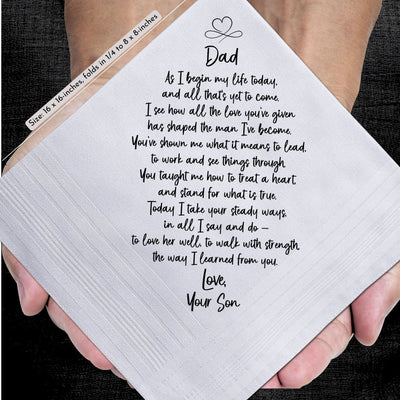 Size: 16 x 16-inches, folds in 1/4 to 8 x 8-inches
Dad
As I begin my life today,
and all that's yet to come,
I see how all the love you've given
has shaped the man I've become.
You've shown me what it means to lead,
to work and see things through.
You taught me how to treat a heart
and stand for what is true.
Today I take your steady ways,
in all I say and do –
to love her well, to walk with strength
the way I learned from you.
Love,
Your Son